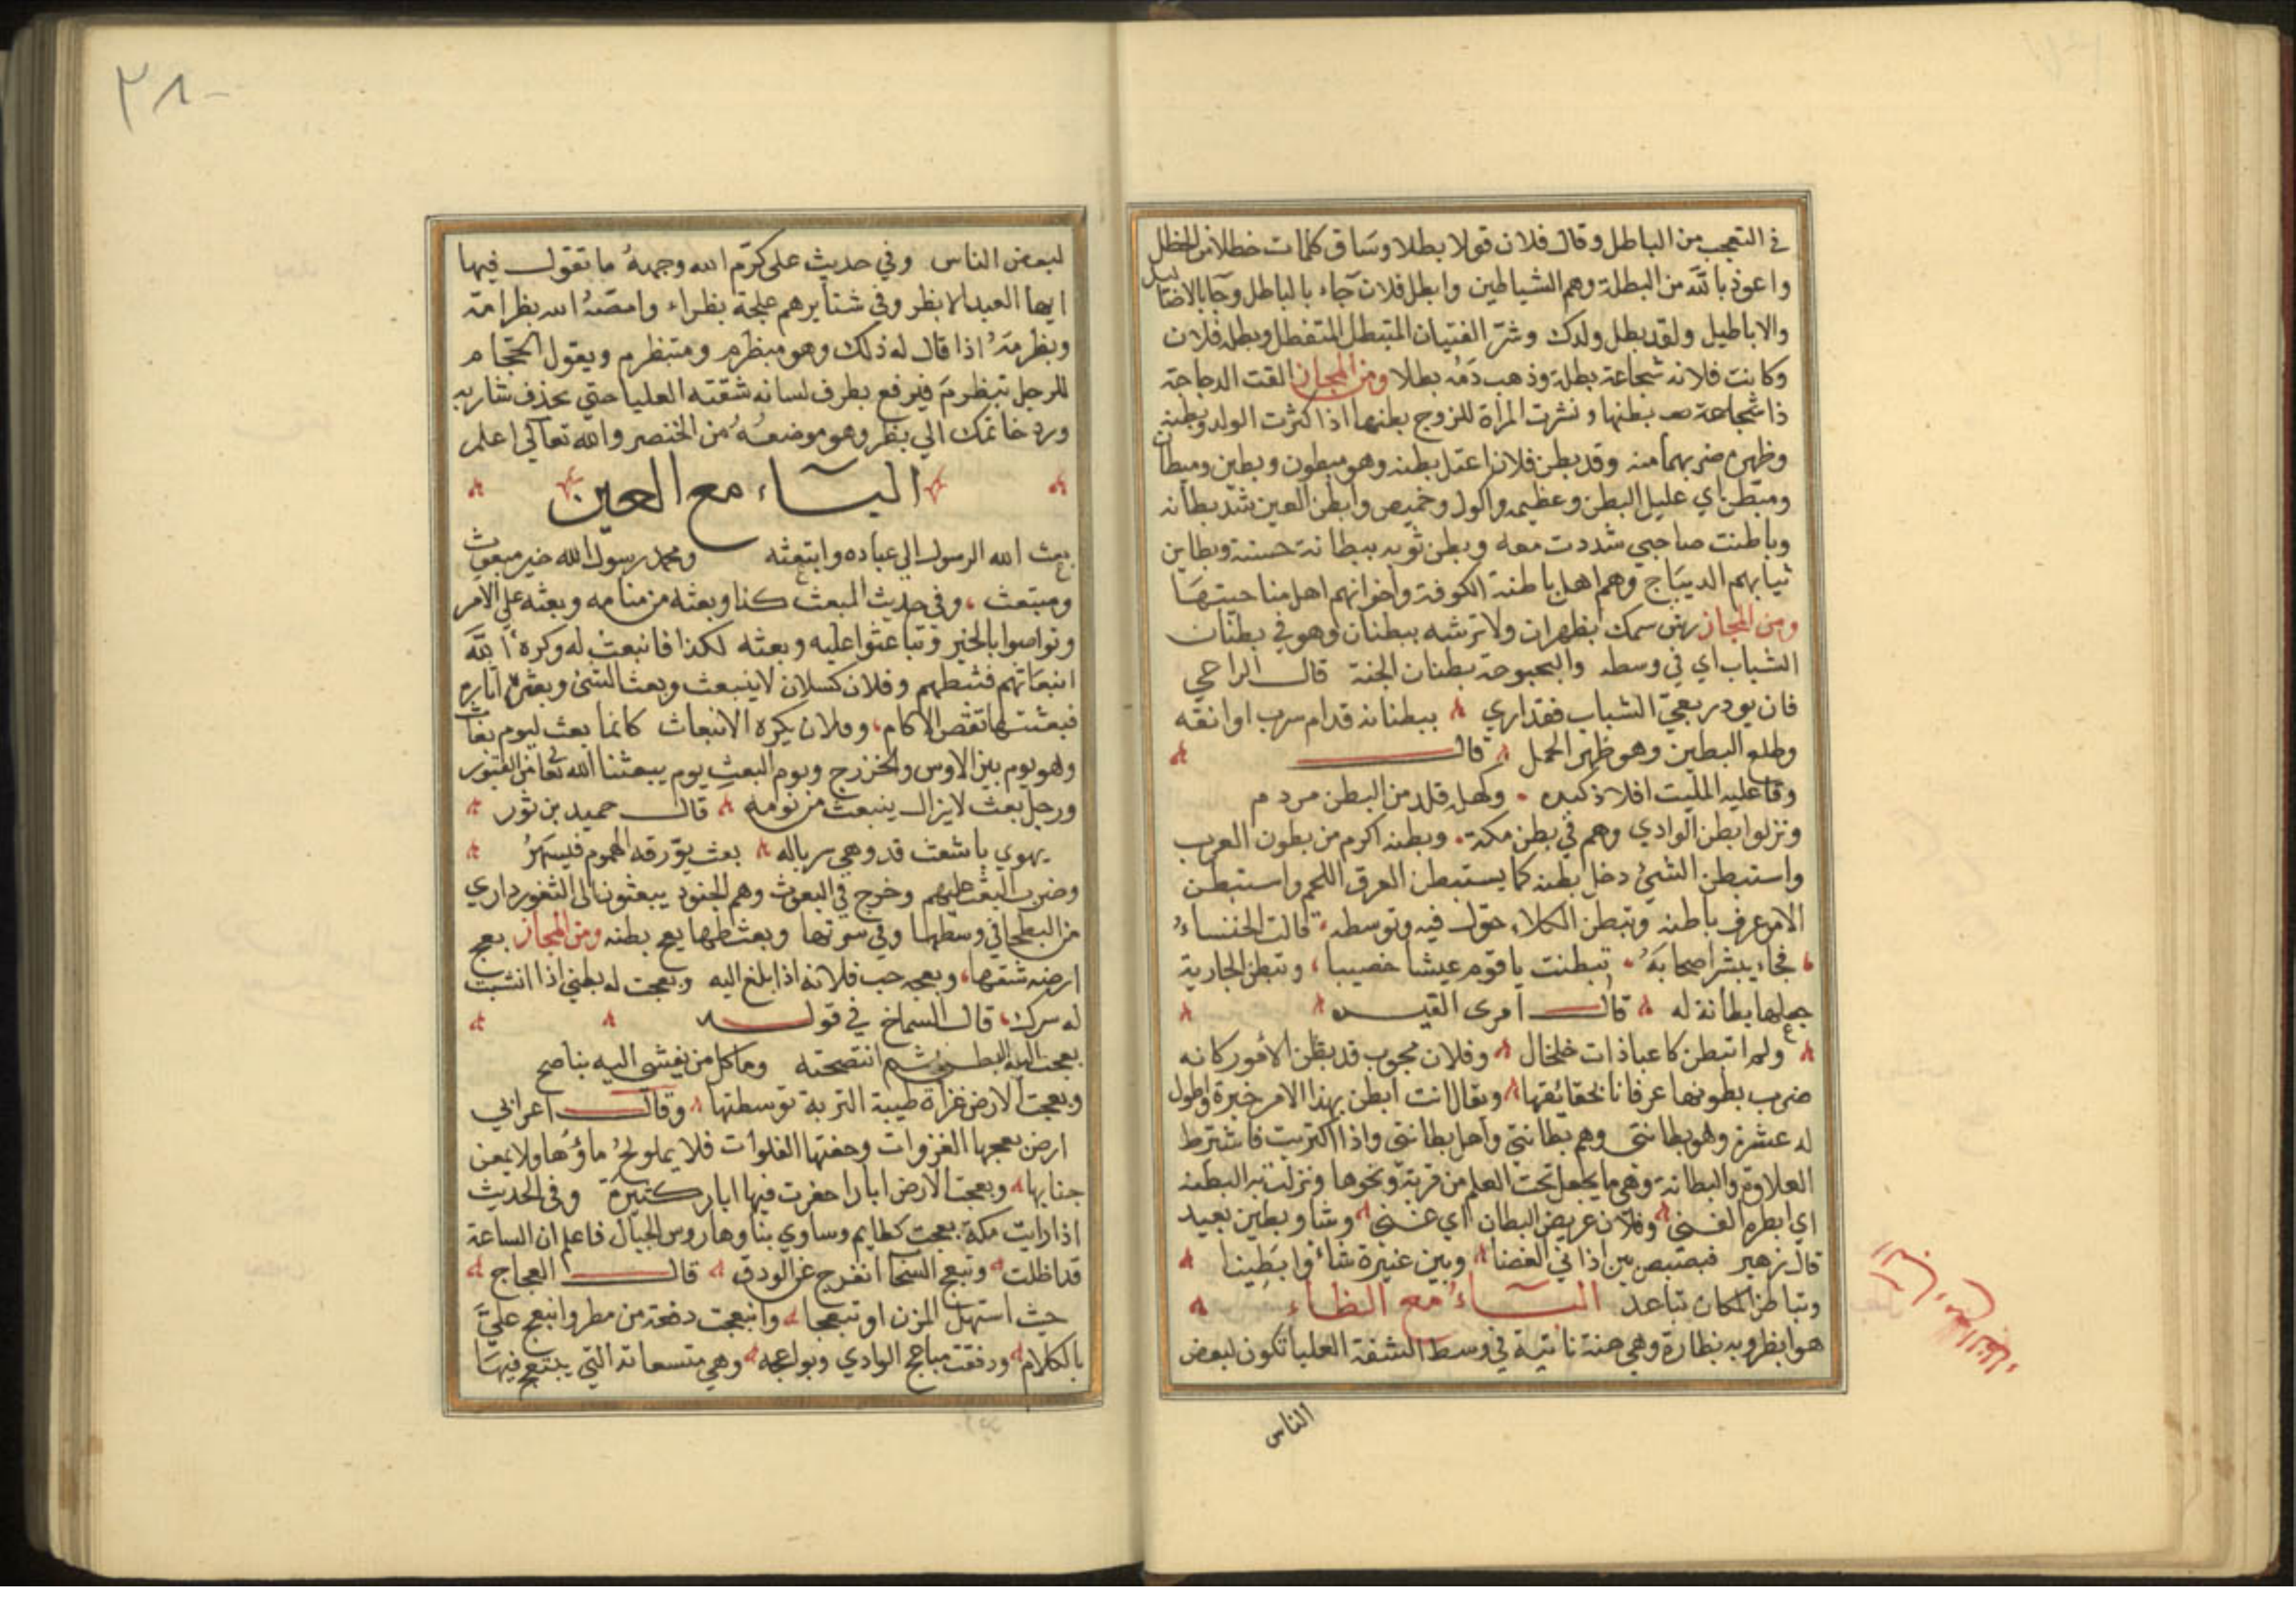 في التعجب من الباطل وقال فلان قولا بطلا وساق كلمات خطلا من الخطل
واعوذ بالله من البطلة وهم الشياطين وابطل فلان جآء بالباطل وجا بالاضاليل
والاباطيل ولقد بطل ولدك وشر الفتيان المتبطل المتفطل وبطل فلان
وكانت فلانه شجاعة بطلة وذهب دمه بطلا ومن المجاز القت الدجاجة
ذا بطنها ونثرت المرأة للزوج بطنها اذا كثرت الولد وبطنه
وظهره ضربهما منه وقد بطن فلان اعتل بطنه وهو مبطون وبطين ومبطان
ومبطن اي عليل البطن وعظيمه واكول وخميص وابطن العين شد بطانه
وباطنت صاحبي شددت معه وبطن ثوبه ببطانة حسنة وبطاين
ثيابهم الديباج وهم اهل باطنة الكوفة واخوانهم اهل ضاحيتها
ومن المجاز رش سهمك بظهران ولا ترشه ببطنان وهو في بطنان
الشباب اي في وسطه والبحبوحة بطنان الجنة قال الراعي
فان يودر بعي الشباب فقد اري ببطنانه قدام سرب اوانقه
وطلع البطين وهو ظهر الحمل قال
وقا عليه الليت افلاذ كبده وكهله قلد من البطن مردم
ونزلوا بطن الوادي وهم في بطن مكة وبطنه اكرم من بطون العرب
واستبطن الشيئ دخل بطنه كما يستبطن العرق اللحم واستبطن
الامر عرف باطنه وتبطن الكلاء جول فيه وتوسطه قالت الخنساء
فجاء يبشر اصحابه تبطنت يا قوم عيشا خصيبا وتبطن الجارية
جعلها بطانة له قال امرى القيس
ولم اتبطن كاعبا ذات خلخال وفلان مجوب قد بطن الامور كانه
ضرب بطونها عرفانا بحقائقها ويقال انت ابطن بهذا الامر خبرة واطول
له عشرة وهو بطانتي وهم بطانتي واهل بطانتي واذا اكتريت فاشترط
العلاوة والبطانة وهي ما يجعل تحت العكم من قربة ونحوها ونزلت به البطنه
اي ابطره الغنى وفلان عريض البطان اي غني وشاو بطين بعيد
قال زهير فبصبص بين اذاني الغضا وبين عنيزة شاوا بطينا
وتباطن المكان تباعد البـــآء مع الظاء
هو ابظر وبه بظارة وهي هنة ناتية في وسط الشفة العليا تكون لبعض
الناس
٣٨
لبعض الناس وفي حديث على كرم الله وجهه ما تقول فيها
ايها العبد الابظر وفي شتايرهم علجة بظراء وامصه الله بظر امه
وبظرمه اذا قال له ذلك وهو مبظرم ومتبظرم ويقول الحجام
للرجل تبظرم فيرفع بطرف لسانه شفته العليا حتي يحذف شاربه
ورد خاتمك الي بظره وهو موضعه من الخنصر والله تعالى اعلم
البـــآء مع العين
بعث الله الرسول الي عباده وابتعثه ومحمد رسول الله خير مبعوث
ومبتعث وفي حديث المبعث كذا وبعثه من منامه وبعثه علي الامر
وتواصوا بالخير وتباعثوا عليه وبعثه لكذا فانبعث له وكره الله
انبعاثهم فثبطهم وفلان كسلان لا ينبعث وبعث الشئ وبعثره اثاره
فبعثتها تقص الاكام وفلان يكره الانبعاث كانما بعث ليوم بعاث
وهو يوم بين الاوس والخزرج ويوم البعث يوم يبعثنا الله تعا من القبور
ورجل بعث لا يزال ينبعث من نومه قال حميد بن ثور
يهوي باشعث قد وهي سرباله بعث يؤرقه الهموم فيسهر
وضرب البعث عليهم وخرج في البعوث وهم الجنود يبعثون الى الثغور داري
من البطحا في وسطها وفي سرتها وبعثطها بعج بطنه ومن المجاز بعج
ارضه شقها وبعجه حب فلانه اذا بلغ اليه وبعجت له بطني اذا افشيت
له سرك قال السماخ في قوله
بعجت اليه البطن ثم انتصحته وما كل من يفشى اليه بناصح
وبعجت الارض عزاة طيبة التربة توسطتها وقال اعرابي
ارض بعجها الغزوات وحفتها الفلوات فلا يملولح ماؤها ولا يمعن
جنابها وبعجت الارض ابارا حفرت فيها ابار كثيرة وفي الحديث
اذا رايت مكة بعجت كظايم وساوي بناوها روس الجبال فاعلم ان الساعة
قد اظلت وتبعج السحا انفرج عن الودق قال العجاج
حيث استهل المزن او تبعجا وانبعجت دفعة من مطر وانبعج علي
بالكلام ودفقت مباعج الوادي وبواعجه وهي متسعاته التي يبتعج فيها